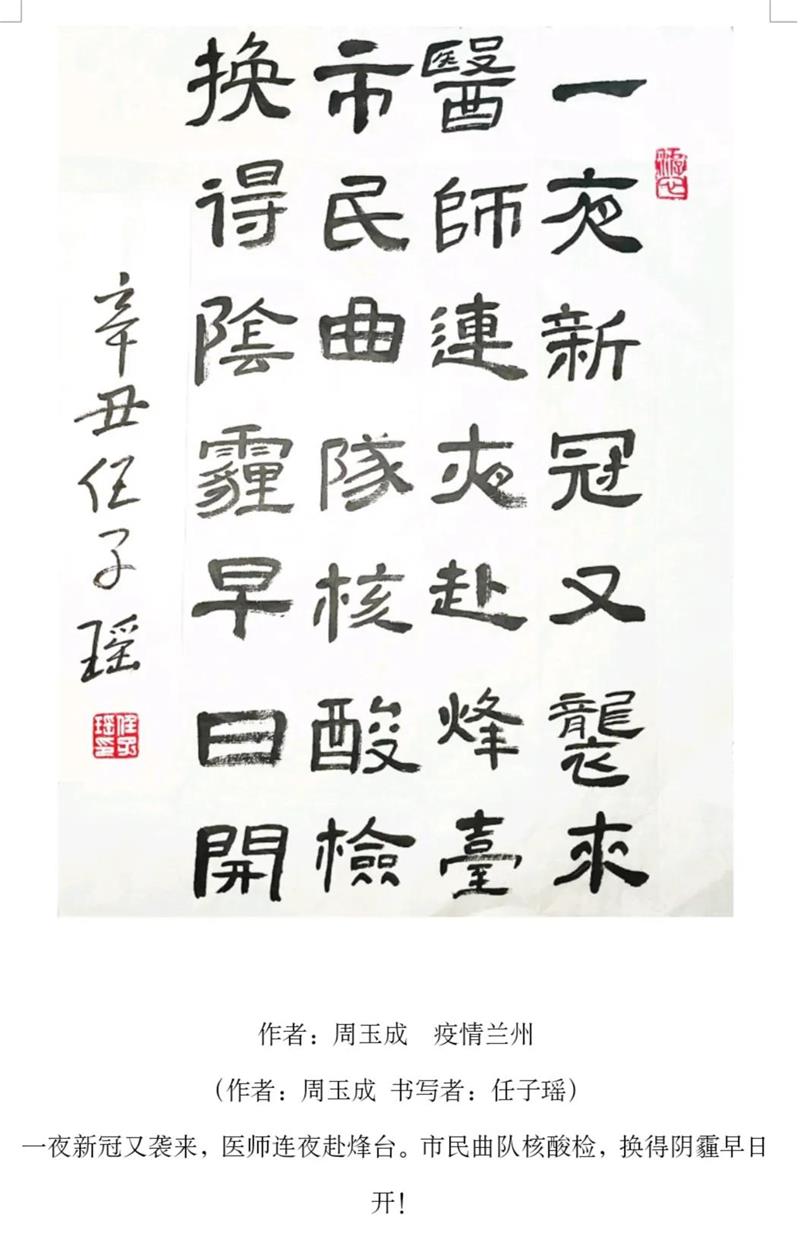 一夜新冠又襲來
醫師連夜赴烽臺
市民曲隊核酸檢
换得陰霾早日開
辛丑任子瑶
任子瑶印
作者：周玉成　疫情兰州
（作者：周玉成 书写者：任子瑶）
一夜新冠又袭来，医师连夜赴烽台。市民曲队核酸检，换得阴霾早日
开！